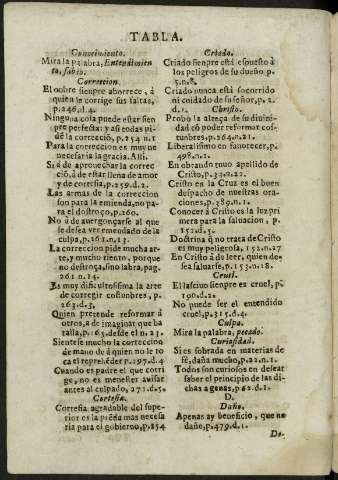 TABLA.
Conocimiento.
Mira la palabra, Entendimien
to, sabio.
Correccion.
El pobre siempre aborrece, à
quien le corrige sus faltas,
p.246.d.4.
Ninguna cosa puede estar siem
pre perfecta: y assi todas pi-
dē la correcció, p.254 n.1
Para la correccion es muy ne
cessaria la gracia. Alli.
Si â de aprouechar la correc
ció, â de estar llena de amor
y de cortesia, p.259.d.2.
Las armas de la correccion
son para la emienda, no pa-
ra el destroço, p.260.
No â de auergonçarse al que
se desea ver emendado de la
culpa, p.261.n.13.
La correccion pide mucha ar-
te, y mucho tiento, porque
no destroça, sino labra, pag.
261 n.14.
Es muy dificultosissima la arte
de corregir costunbres, p.
263.d.3.
Quien pretende reformar â
otros, â de imaginar que ba
talla, p.265. desde el n.23.
Sientese mucho la correccion
de mano de â quien no le to
ca el reprehēder p.297.d.4
Cuando es padre el que corri
ge, no es menester avisar
antes al culpado, 271.d.5.
Cortesia.
Cortesia agradable del supe-
rior es la prēda mas necesa
ria para el gobierno, p.254
Criado.
Criado siempre està espuesto à
los peligros de su dueño p.
5.n.8.
Criado nunca està socorrido
ni cuidado de su señor, p.2.
d.1.
Christo.
Probò la alteça de su diuini-
dad có poder reformar cos-
tunbres, p.264.n.21.
Liberalissimo en fauorecer, p.
498.n.1.
En obrando tuuo apellido de
Cristo, p.33.n.22.
Cristo en la Cruz es el buen
despacho de nuestras ora-
ciones, p.389.n.1.
Conocer â Cristo es la luz pri
mera para la saluacion, p.
152.d.5.
Doctrina q̃ no trata de Cristo
es muy peligrosa, 152.n.27
En Cristo â de leer, quien de-
sea saluarse, p.153.n.28.
Cruel.
El lasciuo siempre es cruel, p.
190.d.2.
No puede ser el entendido
cruel, p.315.d.4.
Culpa.
Mira la palabra, pecado.
Curiosidad.
Si es sobrada en materias de
fê, daña mucho, p.22.n.1.
Todos son curiosos en desear
saber el principio de las di-
chas agenas, p.62.d.1.
D.
Daño.
Apenas ay beneficio, que no
dañe, p.479.d.1.
De-